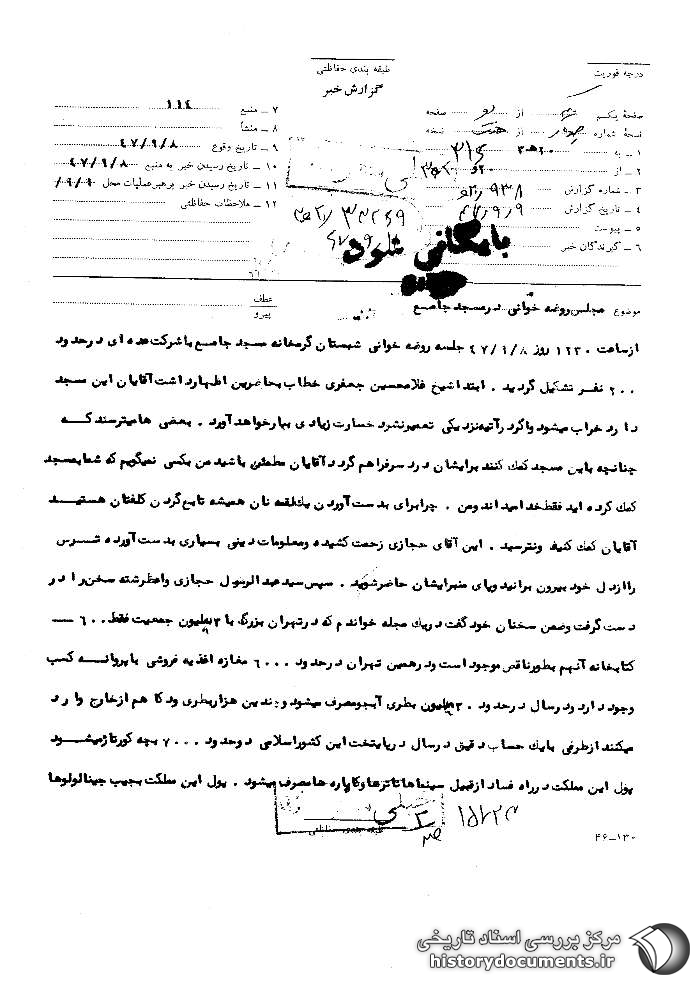 طبقه بندی حفاظتی
درجه فوریت
گزارش خبر
صفحه یکم از دو صفحه
نسخه شماره چهار از هشت نسخه
۱ ـ به ۳۱۶
۲ ـ از ۲۰ ه ۳
۳ ـ شماره گزارش ۹۳۸
۴ ـ تاریخ گزارش ۴۷/۹/۹
۵ ـ پیوست
۶ ـ گیرندگان خبر
۷ ـ منبع ۱۱۴
۸ ـ منشأ
۹ ـ تاریخ وقوع ۴۷/۹/۸
۱۰ ـ تاریخ رسیدن خبر به منبع ۴۷/۹/۸
۱۱ ـ تاریخ رسیدن خبر برهبر عملیات محل ۹/۹/
۱۲ ـ ملاحظات حفاظتی
بایگانی شود
موضوع مجلس روضه خوانی در مسجد جامع
عطف
پیرو
از ساعت ۱۲۳۰ روز ۴۷/۹/۸ جلسه روضه خوانی شبستان گرمخانه مسجد جامع با شرکت عده ای در حدود
۲۰۰ نفر تشکیل گردید . ابتدا شیخ غلامحسین جعفری خطاب بحاضرین اظهار داشت آقایان این مسجد
دارد خراب میشود و اگر در آتیه نزدیکی تعمیر نشود خسارت زیادی ببار خواهد آورد . بعضی ها میترسند که
چنانچه باین مسجد کمک کنند برایشان درد سر فراهم گردد آقایان مطمئن باشید من بکسی نمیگویم که شما بمسجد
کمک کرده اید فقط خدا میداند و من . چرا برای بدست آوردن یک لقمه نان همیشه تابع گردن کلفتان هستیـــد
آقایان کمک کنید و نترسید . این آقای حجازی زحمت کشیده و معلومات دینی بسیاری بدست آورده تـــرس
را از دل خود بیرون برانید و پای منبر ایشان حاضر شوید . سپس سید عبدالرسول حجازی واعظ رشته سخن را در
دست گرفت و ضمن سخنان خود گفت در یک مجله خواندم که در تهران بزرگ با ۳ ملیون جمعیت فقط ۶۰۰ ــ
کتابخانه آنهم بطور ناقص موجود است و در همین تهران در حدود ۶۰۰۰ مغازه اغذیه فروشی با پروانـــه کسب
وجود دارد و در سال در حدود ۳۰ ملیون بطری آبجو مصرف میشود و چندین هزار بطری ودکا هم از خارج وارد
میکنند از طرفی با یک حساب دقیق در سال در پایتخت این کشور اسلامی در حدود ۷۰۰۰ بچه کورتاژ میشـــود
پول این مملکت در راه فساد از قبیل سینماها تاترها و کاباره ها مصرف میشود . پول این مملکت بجیب جینالولوها
طبقه بندی حفاظتی
۴۶-۱۳۰
مرکز بررسی اسناد تاریخی
historydocuments.ir